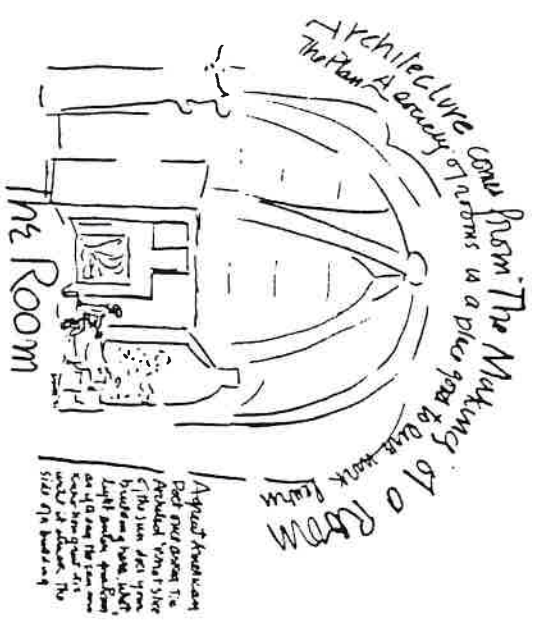 Architecture comes from The Making of a Room
The Plan A society of rooms is a place good to live work learn
The Room
A great American
Poet once asked The
Architect 'What slice
of the sun does your
building have. What
light enters your Room'
as if to say the sun
knew how great it is
until it struck The
side of a building